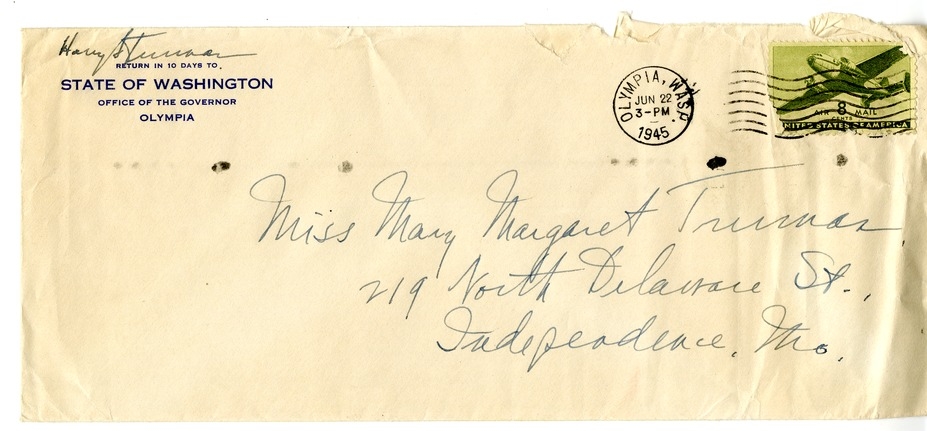 Harry S Truman
RETURN IN 10 DAYS TO
STATE OF WASHINGTON
OFFICE OF THE GOVERNOR
OLYMPIA
OLYMPIA, WASH.
JUN 22
3-PM
1945
AIR 8 MAIL
CENTS
UNITED STATES OF AMERICA
Miss Mary Margaret Truman,
219 North Delaware St.,
Independence, Mo.